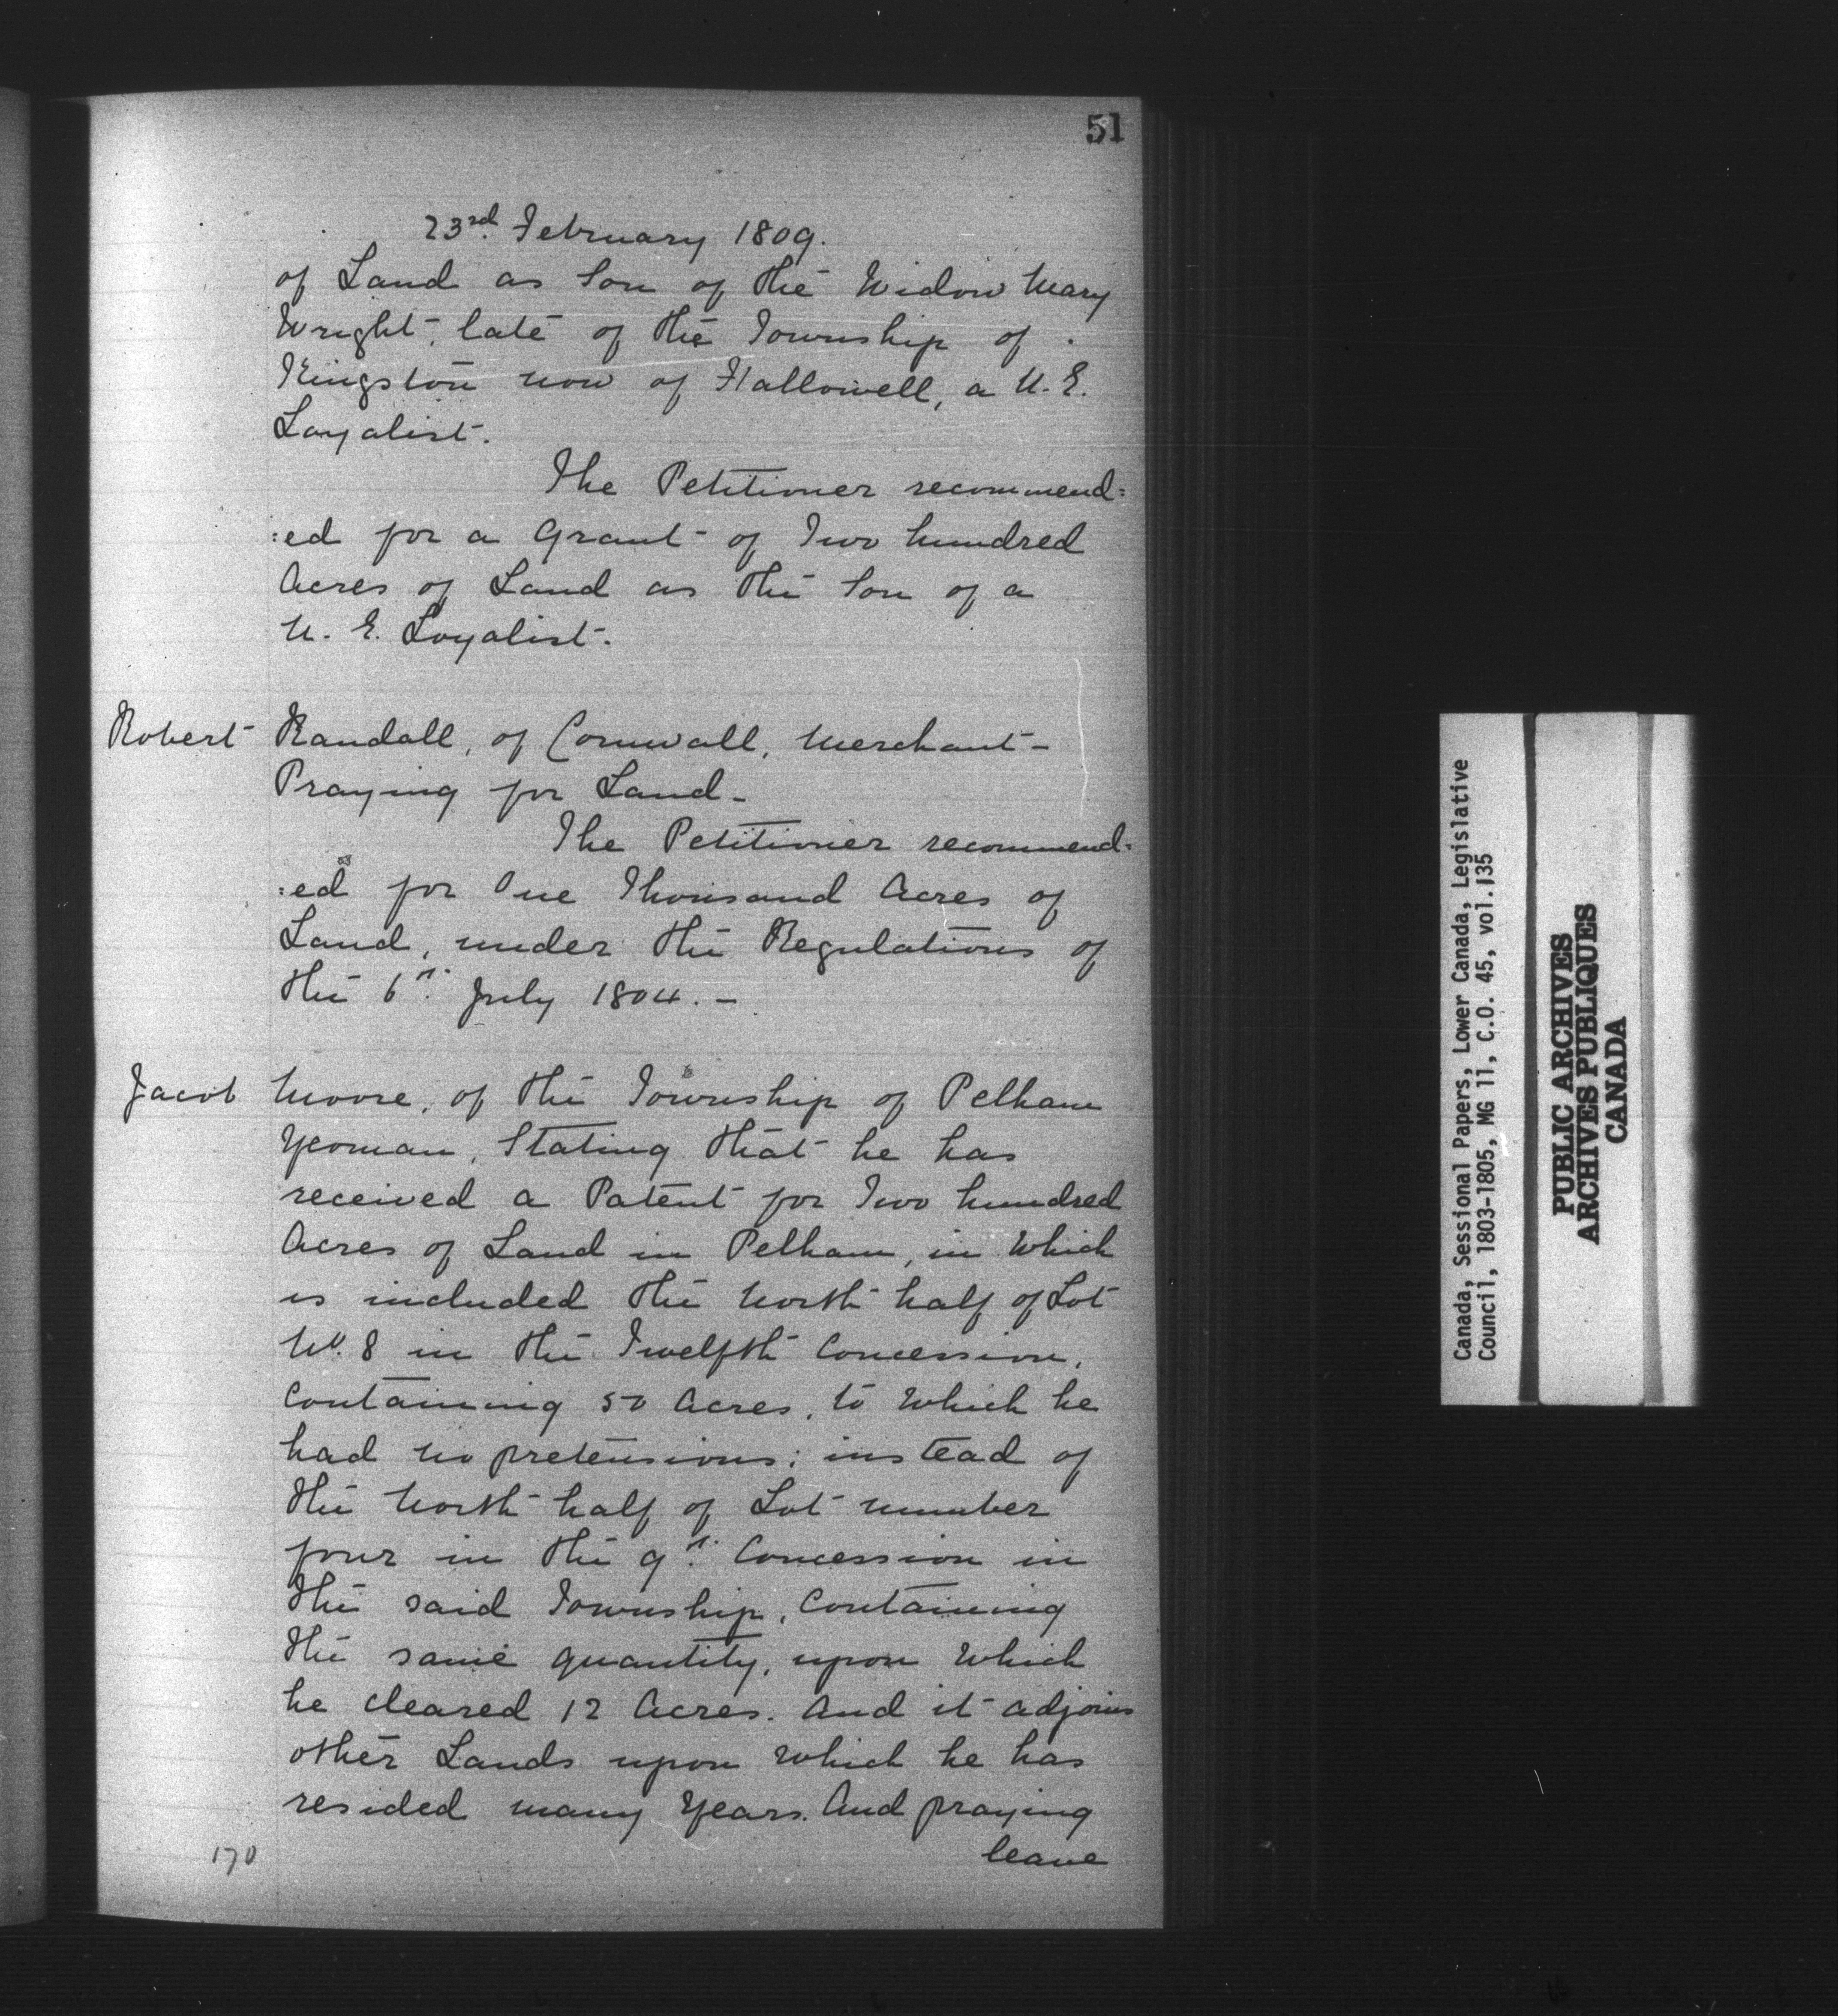 51
23rd. February 1809.
of Land as Son of the Widow Mary
Wright, late of the Township of
Kingston now of Hallowell, a U. E.
Loyalist.
The Petitioner recommend=
:ed for a Grant of Two hundred
Acres of Land as the Son of a
U. E. Loyalist.
Robert Randall, of Cornwall, Merchant -
Praying for Land -
The Petitioner recommend=
:ed for One Thousand Acres of
Land, under the Regulations of
the 6th. July 1804. -
Jacob Moore, of the Township of Pelham
Yeoman, Stating that he has
received a Patent for Two hundred
Acres of Land in Pelham, in Which
is included the North half of Lot
No. 8 in the Twelfth Concession,
Containing 50 Acres, to Which he
had no pretensions; instead of
the North half of Lot number
four in the 9th. Concession in
the said Township, Containing
the same quantity, upon Which
he cleared 12 Acres. And it adjoins
other Lands upon Which he has
resided many Years. And praying
leave
170
Canada, Sessional Papers, Lower Canada, Legislative
Council, 1803-1805, MG 11, C.O. 45, vol.135
PUBLIC ARCHIVES
ARCHIVES PUBLIQUES
CANADA